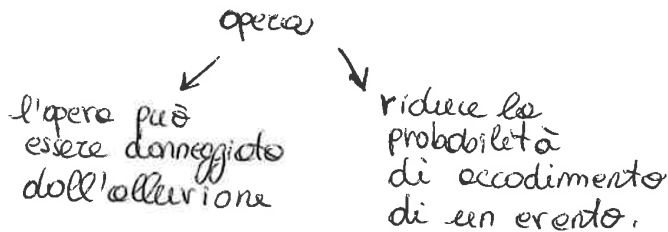 opera
l'opera può
essere danneggiata
dall'alluvione
riduce la
probabilità
di accadimento
di un evento.